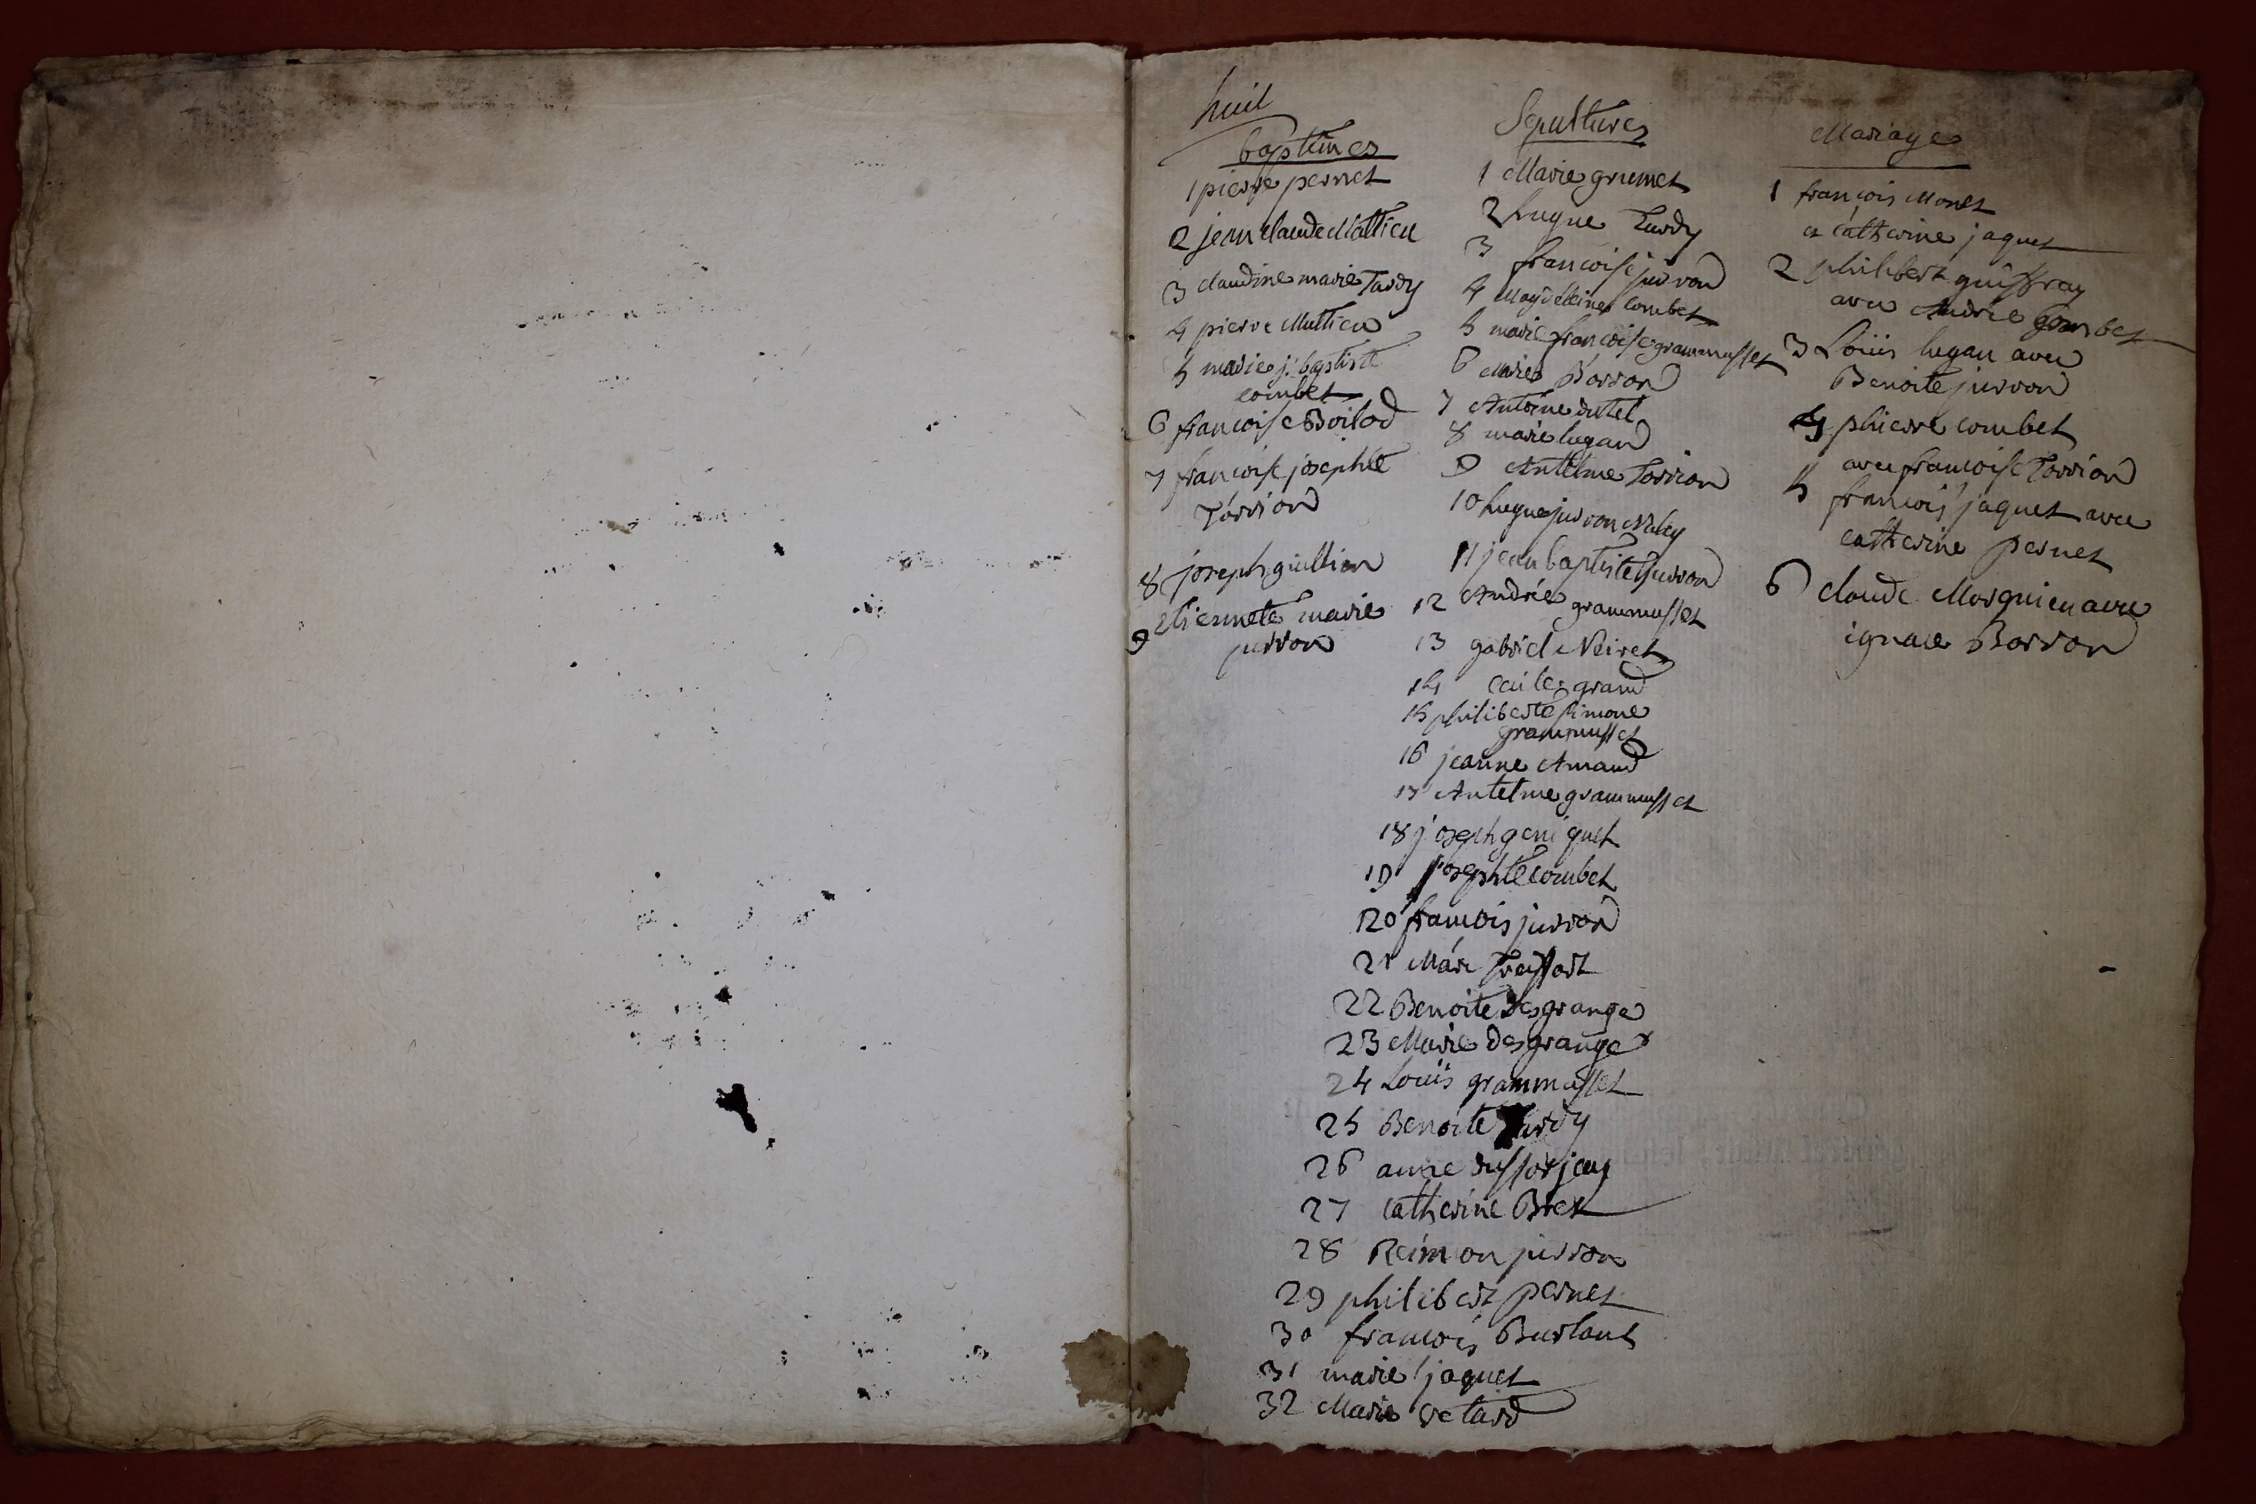 huit
baptemes
1 pierre pernet
2 jean claude Mattieu
3 claudine marie Tardy
4 pierre Mattieu
5 marie j. baptiste
combet
6 francoise Boilod
7 francoise josephte
Torrion
8 joseph guillion
9 Etiennete marie
jurron
Sepultures
1 Marie grumet
2 hugue Tardy
3 francoise jurron
4 Magdeleine Combet
5 marie francoise grammusset
6 Marie Borron
7 Antoine dutel
8 marie hugand
9 Antelme Torrion
10 hugue jurron
11 jean baptiste jurron
12 Andrée grammusset
13 gabriel Neiret
14 grand
15 philiberte simone
grammusset
16 jeanne Amand
17 Antelme grammusset
18 joseph geniquet
19 josephte combet
20 francois jurron
21 Treffort
22 Benoite Desgrange
23 Marie desgrange
24 Louis grammusset
25 Benoite Tardy
26 anne
27 Catherine
28 Reimon jurron
29 philibert pernet
30 francois Burlant
31 marie jaquet
32 Marie
Mariage
1 francois Monet
et catherine jaquet
2 philibert guiffray
avec Andrée gombet
3 Loüis hugan avec
Benoite jurron
4 phierre combet
avec francoise Torrion
5 francois jaquet avec
catherine pernet
6 claude Morgnieu avec
ignace Borron